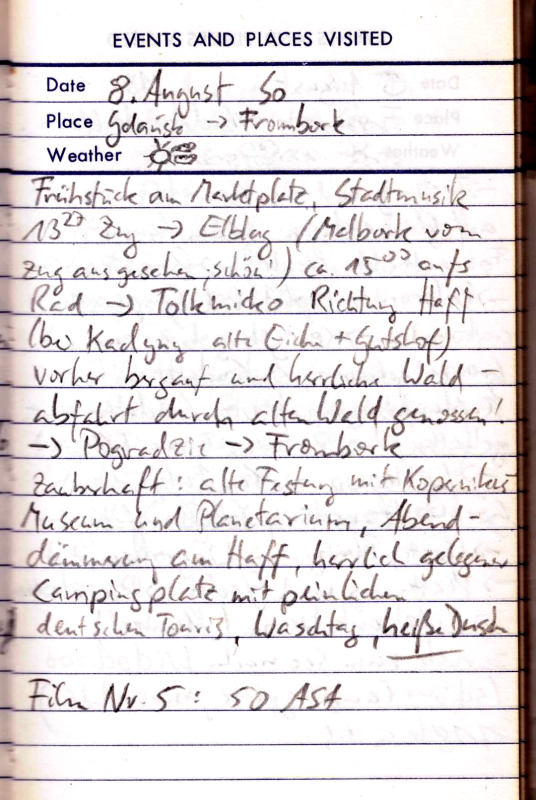 EVENTS AND PLACES VISITED
Date 8. August So
Place Gdańsk → Frombork
Weather
Frühstück am Marktplatz, Stadtmusik
13²⁷ Zug → Elbląg (Malbork vom
Zug aus gesehen, schön!) ca. 15⁰⁰ aufs
Rad → Tolkmicko Richtung Haff
(bei Kadyny alte Eiche + Gutshof)
vorher bergauf und herrliche Wald-
abfahrt durch alten Wald genossen!
→ Pogradzie → Frombork
zauberhaft: alte Festung mit Kopernikus
Museum und Planetarium, Abend-
dämmerung am Haff, herrlich gelegener
Campingplatz mit peinlichen
deutschen Touris, Waschtag, heiße Dusche
Film Nr. 5: 50 ASA